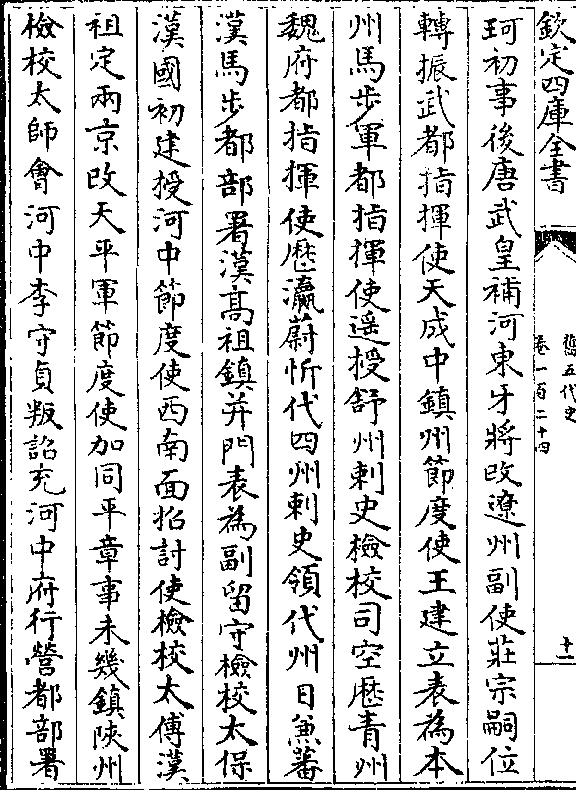 欽定四庫全書
舊五代史
卷一百二十四
十一
珂初事後唐武皇補河東牙將改遼州副使莊宗嗣位
轉振武都指揮使天成中鎮州節度使王建立表為本
州馬步軍都指揮使遥授舒州刺史檢校司空歷青州
魏府都指揮使歷瀛蔚忻代四州刺史領代州日兼蕃
漢馬步都部署漢高祖鎮并門表為副留守檢校太保
漢國初建授河中節度使西南面招討使檢校太傅漢
祖定兩京改天平軍節度使加同平章事未幾鎮陝州
檢校太師會河中李守貞叛詔充河中府行營都部署